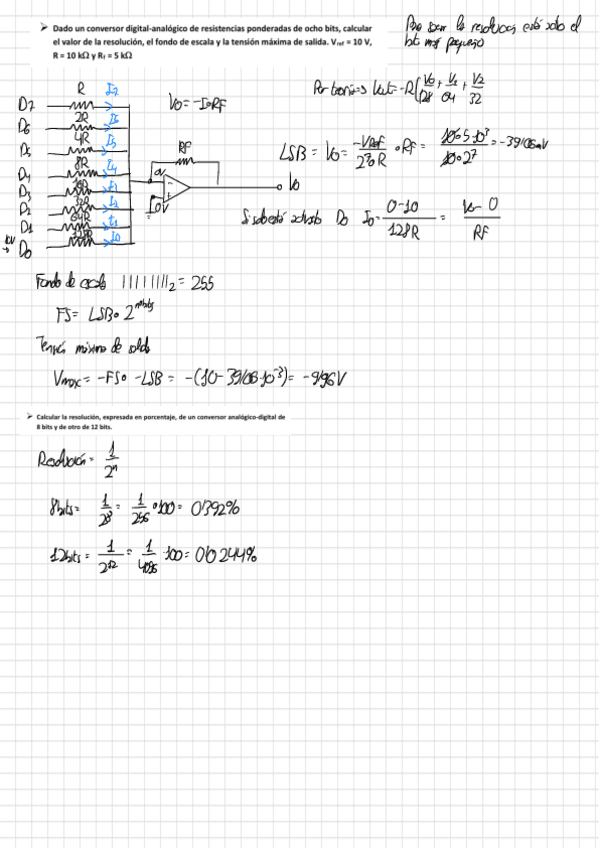 ➢ Dado un conversor digital-analógico de resistencias ponderadas de ocho bits, calcular
el valor de la resolución, el fondo de escala y la tensión máxima de salida. Vref = 10 V,
R = 10 kΩ y Rf = 5 kΩ
Para sacar la resolución está solo el
bit más pequeño
R I7
D7
2R
D6
4R I5
D5
8R I4
D4
D3
32R
D2
64R
D1
128R I0
D0
10V
V0 = -I0RF
RF
0V
I0V
V0
Por teoría
LSB = V0 = -VRef / 2⁷·R · RF = 10·5·10³ / 10·2⁷ = -39'06mV
Si solo está activado D0 I0 = 0-10 / 128R = V0-0 / RF
Fondo de escala 11111111₂ = 255
FS = LSB · 2^nºbits
Tensión máxima de salida
Vmax = -FS - LSB = -(10-39'06·10⁻³) = -9'96V
➢ Calcular la resolución, expresada en porcentaje, de un conversor analógico-digital de
8 bits y de otro de 12 bits.
Resolución = 1/2ⁿ
8bits = 1/2⁸ = 1/256 · 100 = 0'392%
12bits = 1/2¹² = 1/4096 · 100 = 0'0244%